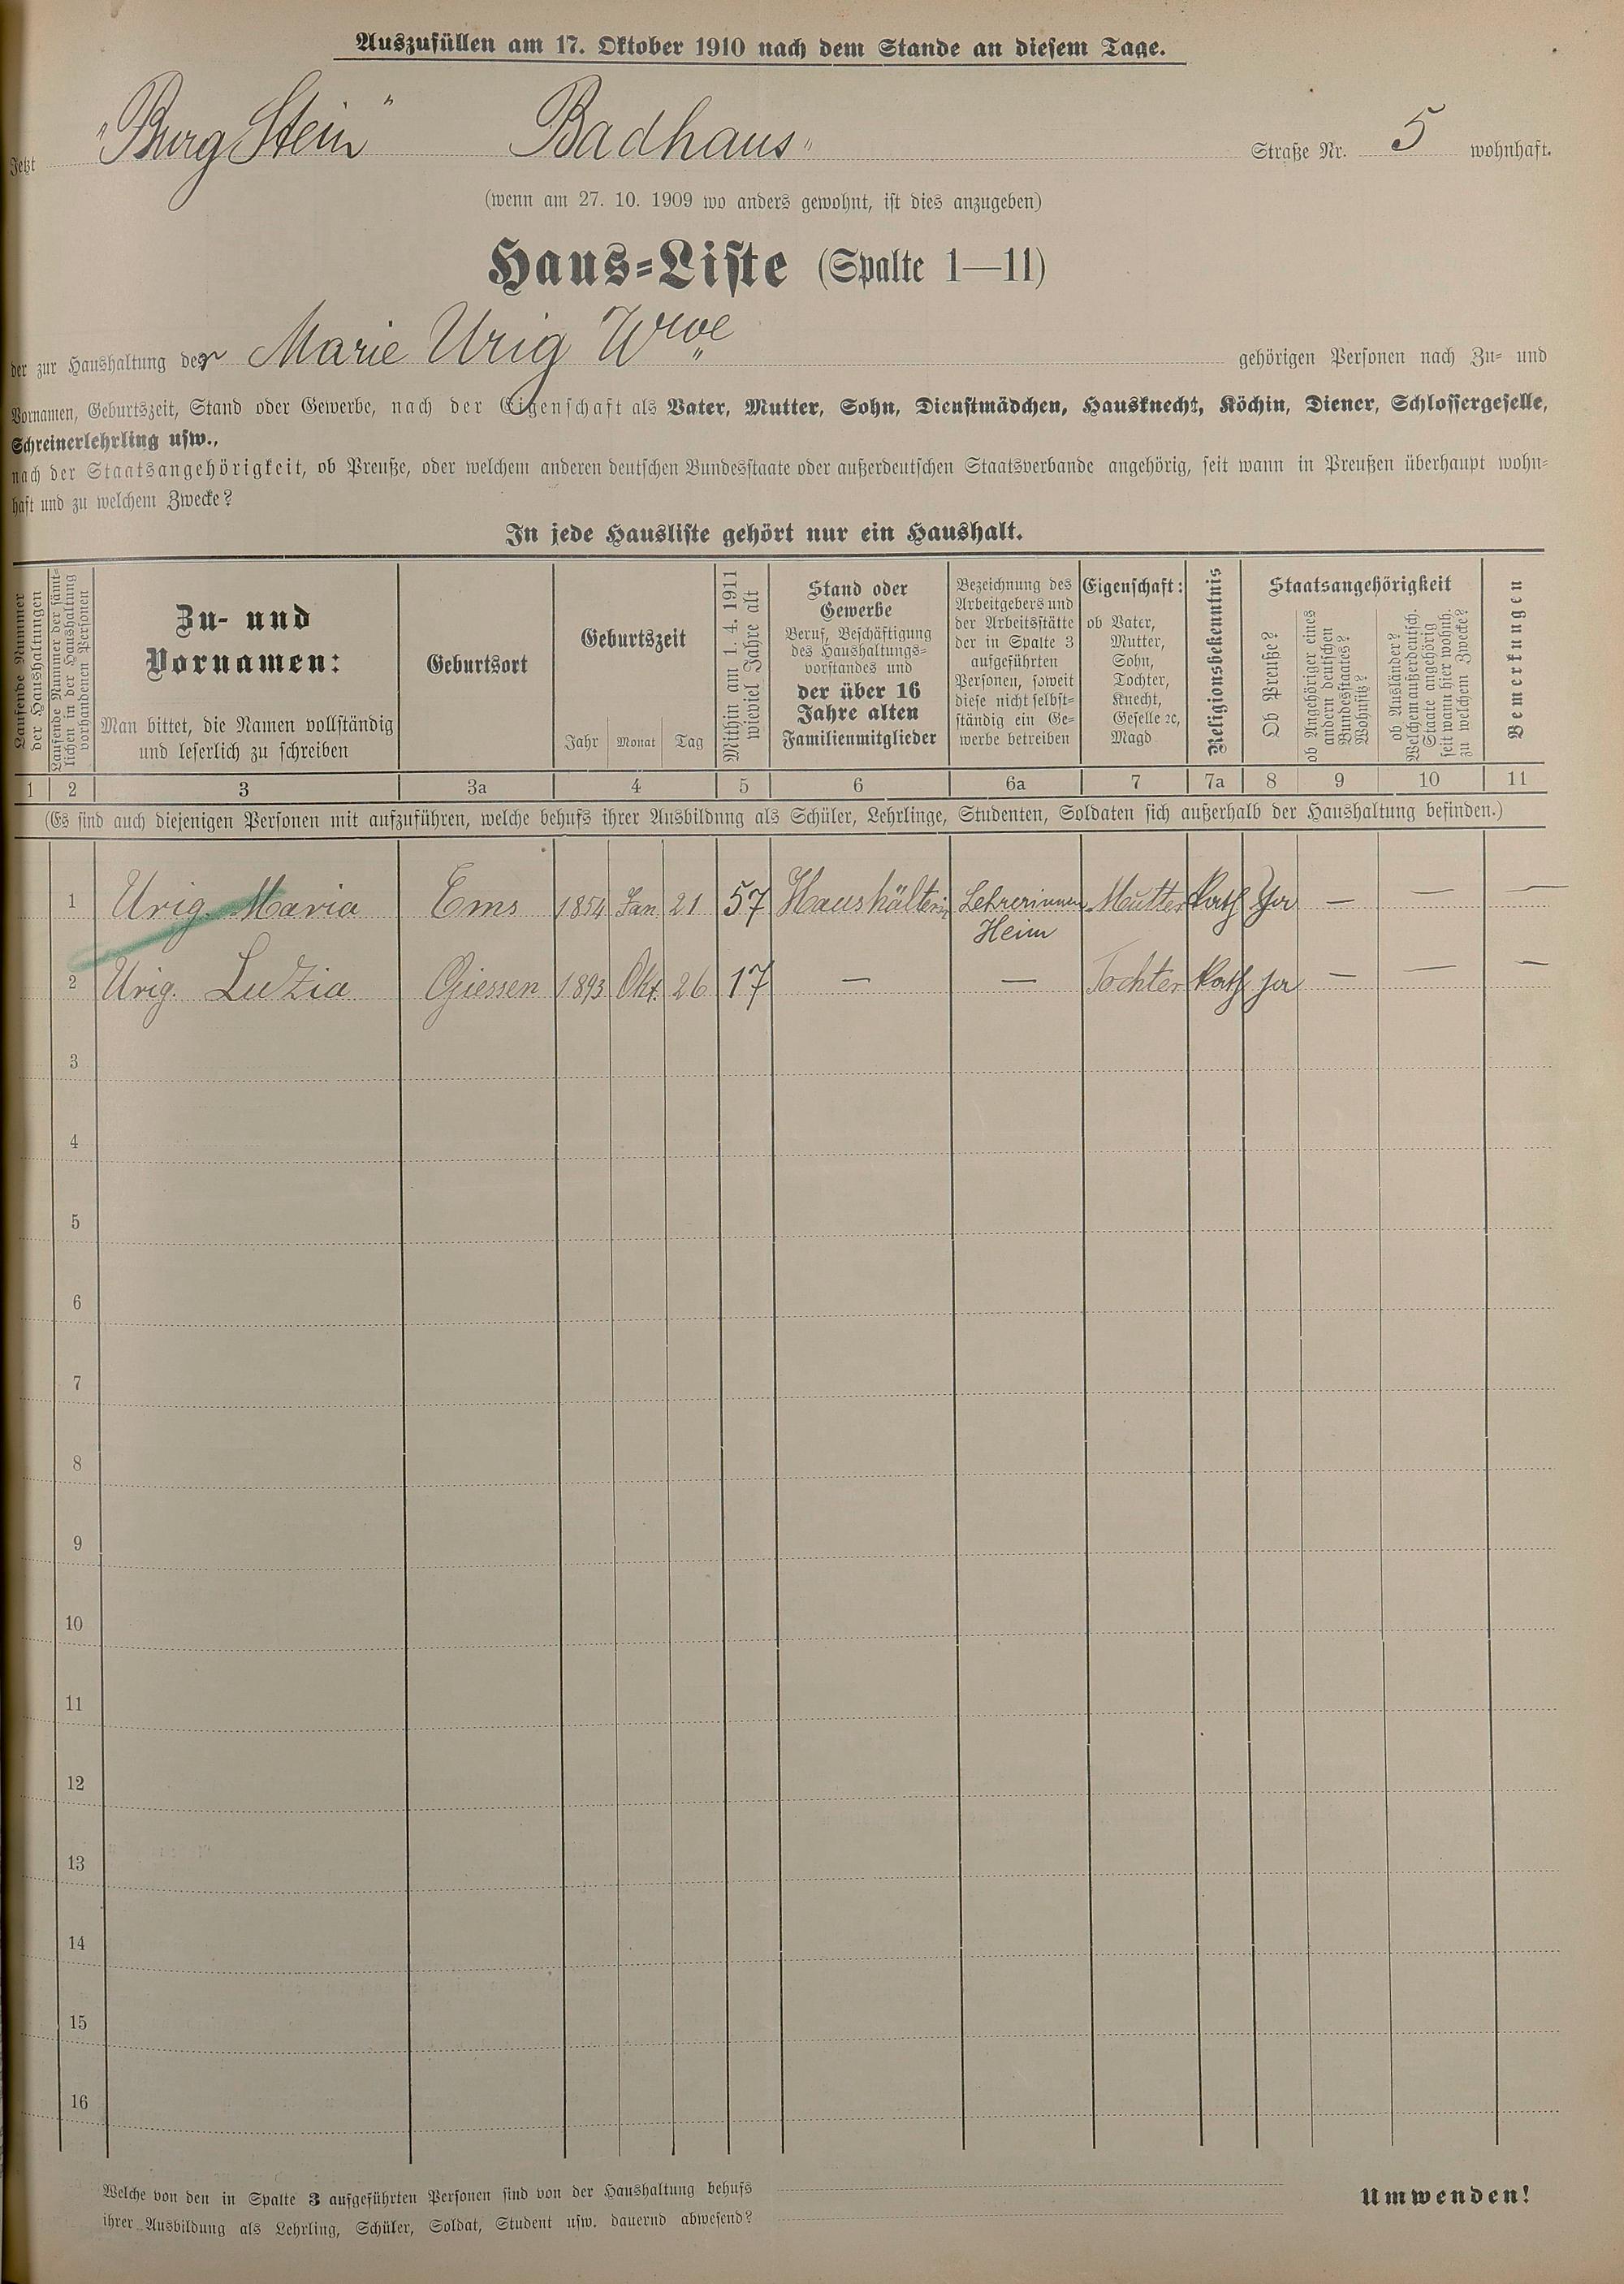 Auszufüllen am 17. Oktober 1910 nach dem Stande an diesem Tage.
Jetzt „Burg Stein" Badhaus" Straße Nr. 5 wohnhaft.
(wenn am 27. 10. 1909 wo anders gewohnt, ist dies anzugeben)
Haus-Liste (Spalte 1—11)
der zur Haushaltung der Marie Urig Wwe gehörigen Personen nach Zu- und
Vornamen, Geburtszeit, Stand oder Gewerbe, nach der Eigenschaft als Vater, Mutter, Sohn, Dienstmädchen, Hausknecht, Köchin, Diener, Schlossergeselle,
Schreinerlehrling usw.,
nach der Staatsangehörigkeit, ob Preuße, oder welchem anderen deutschen Bundesstaate oder außerdeutschen Staatsverbande angehörig, seit wann in Preußen überhaupt wohn-
haft und zu welchem Zwecke?
In jede Hausliste gehört nur ein Haushalt.
Laufende Nummer
der Haushaltungen
Laufende Nummer der sämt-
lichen in der Haushaltung
vorhandenen Personen
Zu- und
Vornamen:
Man bittet, die Namen vollständig
und leserlich zu schreiben
Geburtsort
Geburtszeit
Jahr Monat Tag
Mithin am 1. 4. 1911
wieviel Jahre alt
Stand oder
Gewerbe
Beruf, Beschäftigung
des Haushaltungs-
vorstandes und
der über 16
Jahre alten
Familienmitglieder
Bezeichnung des
Arbeitgebers und
der Arbeitsstätte
der in Spalte 3
aufgeführten
Personen, soweit
diese nicht selbst-
ständig ein Ge-
werbe betreiben
Eigenschaft:
ob Vater,
Mutter,
Sohn,
Tochter,
Knecht,
Geselle ec,
Magd
Religionsbekenntnis
Staatsangehörigkeit
Ob Preuße?
ob Angehöriger eines
andern deutschen
Bundesstaates?
Wohnsitz?
ob Ausländer?
Welchem außerdeutsch.
Staate angehörig
seit wann hier wohnh.
zu welchem Zwecke?
Bemerkungen
1 2 3 3a 4 5 6 6a 7 7a 8 9 10 11
(Es sind auch diejenigen Personen mit aufzuführen, welche behufs ihrer Ausbildung als Schüler, Lehrlinge, Studenten, Soldaten sich außerhalb der Haushaltung befinden.)
1 Urig. Maria Ems 1854 Jan 21 57 Haushälterin Lehrerinnen Heim Mutter Kath Ja — — —
2 Urig. Luzia Giessen 1893 Okt. 26 17 — — Tochter Kath ja — — —
3
4
5
6
7
8
9
10
11
12
13
14
15
16
Welche von den in Spalte 3 aufgeführten Personen sind von der Haushaltung behufs
ihrer Ausbildung als Lehrling, Schüler, Soldat, Student usw. dauernd abwesend?
Umwenden!